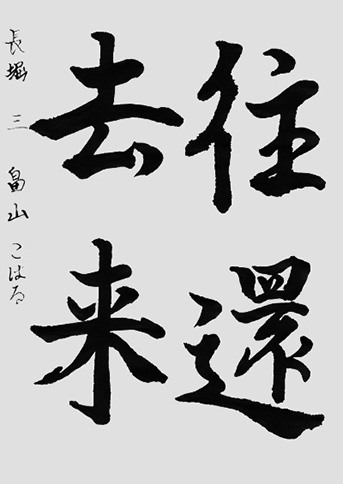 往還
去来
長堀 三 畠山こはる